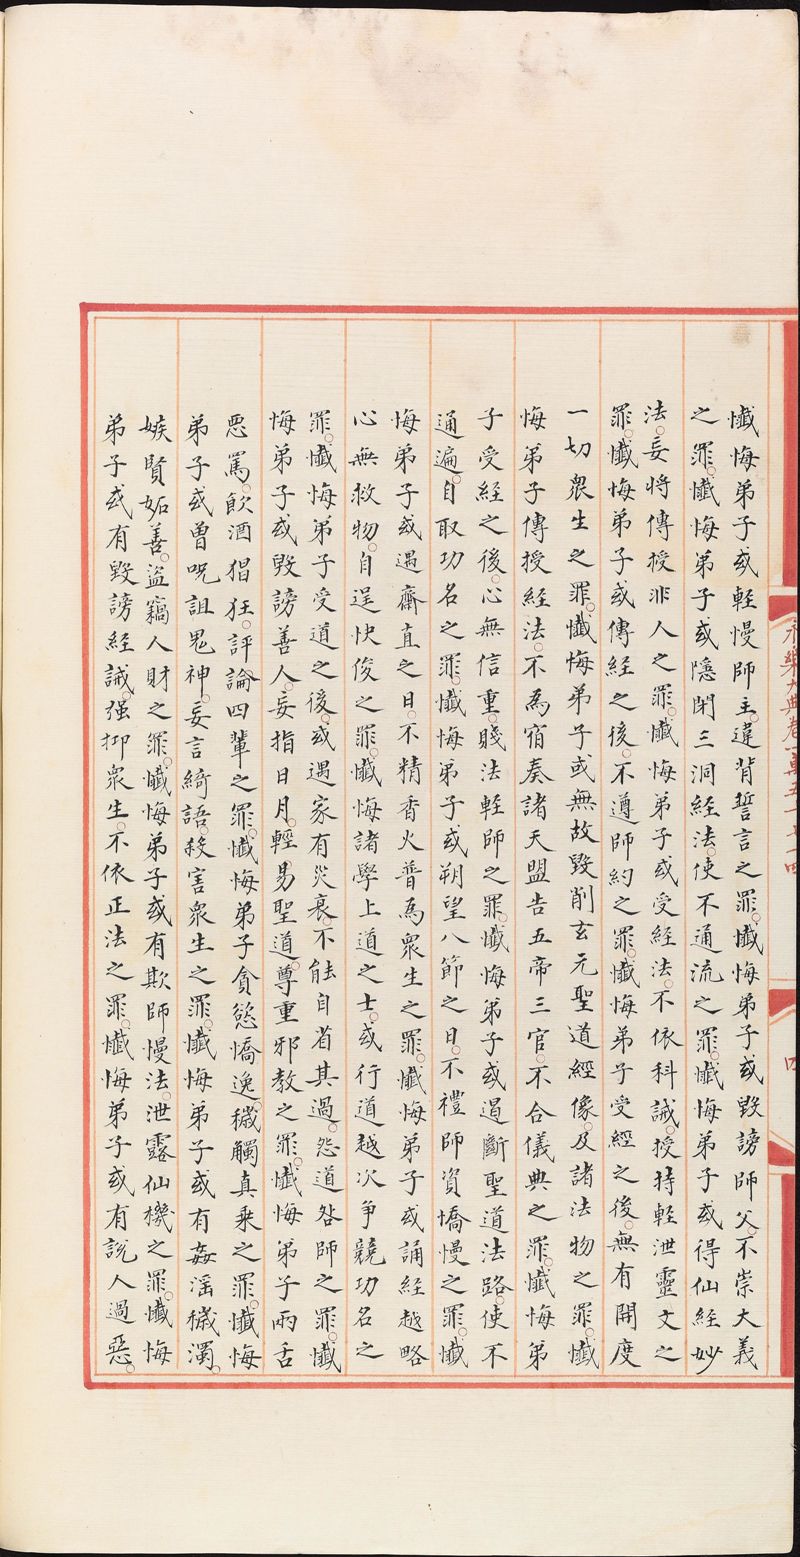 永樂大典卷一萬五千七十四
四
懺悔弟子或輕慢師主。違背誓言之罪。懺悔弟子或毀謗師父。不崇大義
之罪。懺悔弟子或隱閉三洞經法。使不通流之罪。懺悔弟子或得仙經妙
法。妄將傳授非人之罪。懺悔弟子或受經法。不依科誡。授持輕泄靈文之
罪。懺悔弟子或傳經之後。不遵師約之罪。懺悔弟子受經之後。無有開度
一切衆生之罪。懺悔弟子或無故毀削玄元聖道經像。及諸法物之罪。懺
悔弟子傳授經法。不爲宿奏諸天盟告五帝三官。不合儀典之罪。懺悔弟
子受經之後。心無信重。賤法輕師之罪。懺悔弟子或遏斷聖道法路。使不
通遍。自取功名之罪。懺悔弟子或朔望八節之日。不禮師資憍慢之罪。懺
悔弟子或遇齋直之日。不精香火普爲衆生之罪。懺悔弟子或誦經越略
心無救物。自逞快俊之罪。懺悔諸學上道之士。或行道越次爭競功名之
罪。懺悔弟子受道之後。或遇家有災衰。不能自省其過。怨道咎師之罪。懺
悔弟子或毀謗善人。妄指日月。輕易聖道。尊重邪教之罪。懺悔弟子兩舌
惡罵。飲酒猖狂。評論四輩之罪。懺悔弟子貪慾憍逸。穢觸真乘之罪。懺悔
弟子或曾呪詛鬼神。妄言綺語。殺害衆生之罪。懺悔弟子或有姦滛穢濁。
嫉賢妬善。盜竊人財之罪。懺悔弟子或有欺師慢法。泄露仙機之罪。懺悔
弟子或有毀謗經誡。强抑衆生。不依正法之罪。懺悔弟子或有說人過惡。